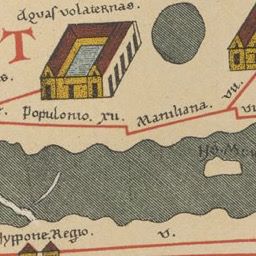 Aquas volaternas.
T
s.
Populonio. xii. Maniliana.
vii.
vi
Hyppone. Regio. v.